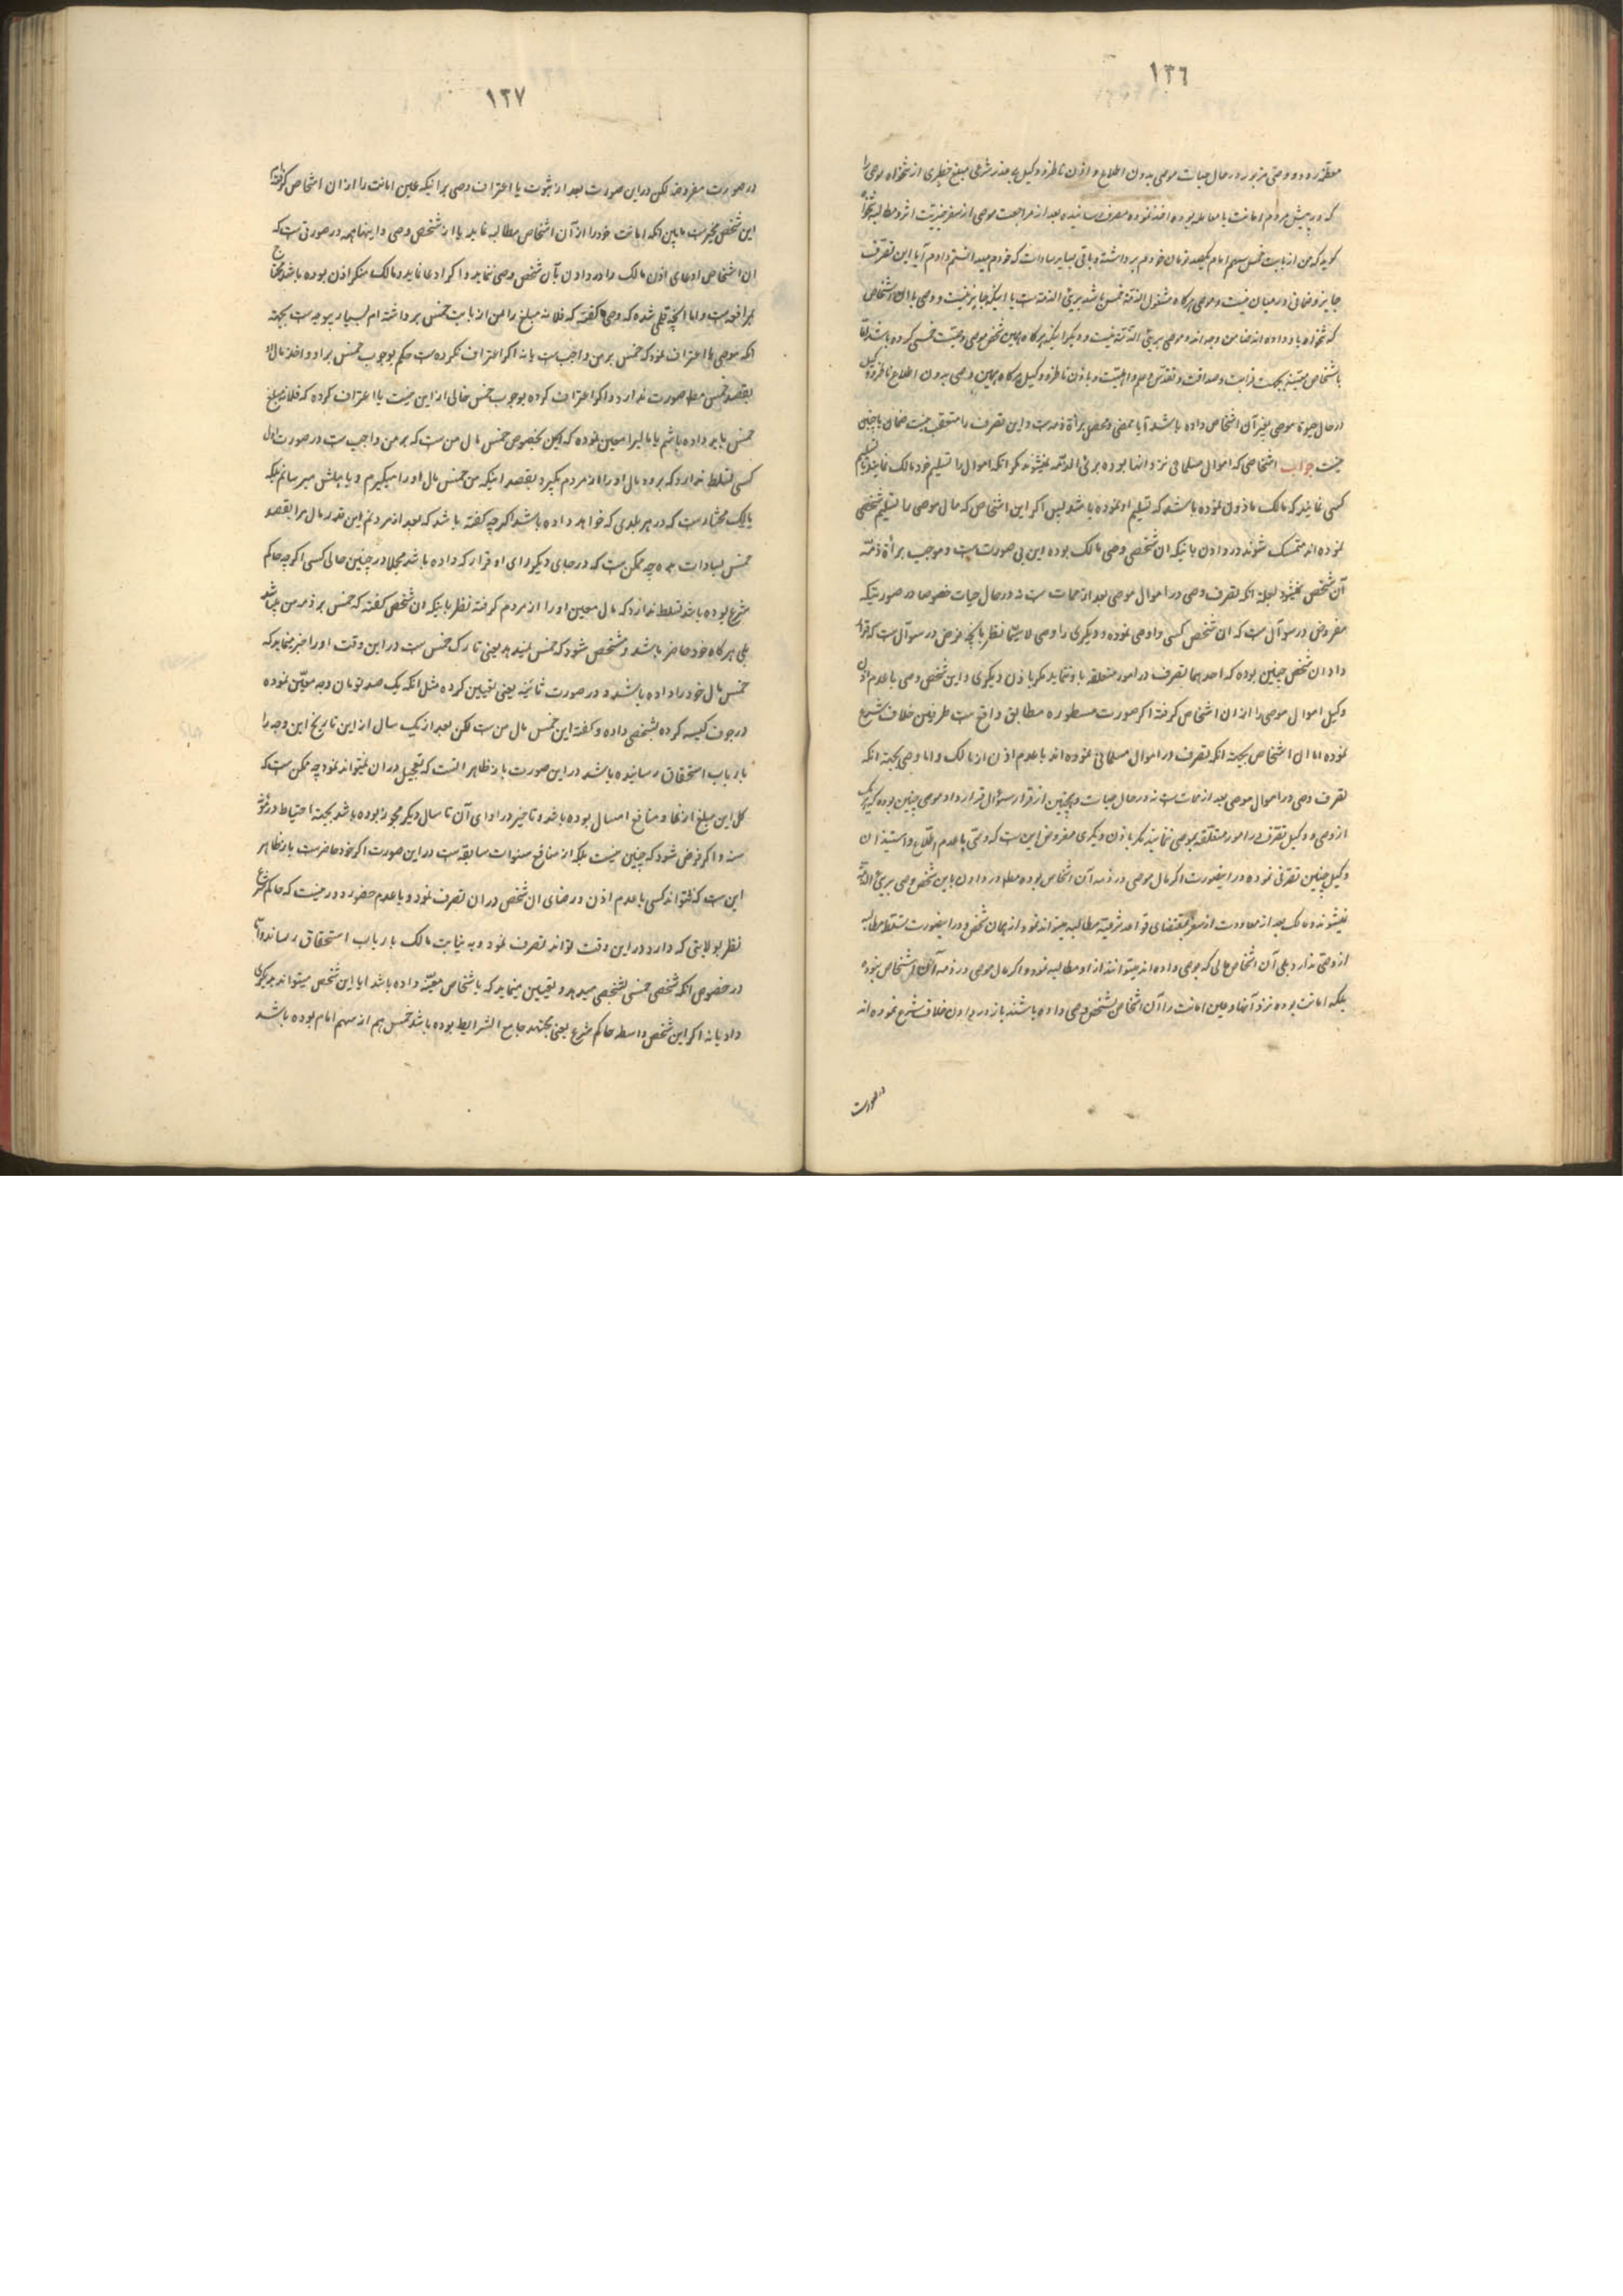 ١٣٦
معظمه رود و وصی مزبور در حال حیات موصی بدون اطلاع و اذن ناظر و وکیل بی عذر شرعی مبلغ خطیری از تنخواه موصی را
که در پیش مردم امانت یا معامله بوده اخذ نموده بمصرف رسانیده بعد از مراجعت موصی از سفر خیریت اثر و مطالبه تنخواه
گوید که من از بابت خمس سهم امام یکصد تومان خودم برداشته و باقی بسایر سادات که خودم میدانستم دادم آیا این تصرف
جایز و ضمانی در میان نیست و موصی هرگاه مشغول الذمه خمس باشد بریء الذمه است یا اینکه جایز نیست و وصی با ان اشخاص
که تنخواه باو داده اند ضامن وجه اند و موصی بریء الذمه نیست و دیگر اینکه هرگاه همین شخص موصی وصیت خمسی کرده باشد
باشخاص معینه بجهت قرابت و صداقت و تقدس و علم و اهلیت و باذن ناظر و وکیل هرگاه همین وصی بدون اطلاع ناظر و وکیل
در حال حیوة موصی بغیر آن اشخاص داده باشد آیا ممضی و محصل برأة ذمه است و این تصرف را متعقب نیست ضمان یا چنین
نیست جواب اشخاصی که اموال مسلمانی نزد انها بوده بریء الذمه نمیشوند مگر انکه اموال را تسلیم خود مالک نمایند یا تسلیم
کسی نمایند که مالک ماذون نموده باشد که تسلیم او نموده باشد پس اگر این اشخاص که مال موصی را تسلیم شخصی
نموده اند متمسک شوند در دادن باینکه ان شخص وصی مالک بوده این بی صورت است و موجب برأة ذمه
آن شخص نمیشود لجهة انکه تصرف وصی در اموال موصی بعد از ممات است نه در حال حیات خصوصا در صورتیکه
مفروض در سوآل است که ان شخص کسی را وصی نموده و دیگری را وصی لا سیما نظر بآنچه فرض در سوآل است که قرار
داد ان شخص چنین بوده که احدهما تصرف در امور متعلقه باو ننماید مگر باذن دیگری و این شخص وصی با عدم اذن
وکیل اموال موصی را از ان اشخاص گرفته اگر صورت مسطوره مطابق واقع است طرفین خلاف شرع
نموده اما ان اشخاص بجهته انکه تصرف در اموال مسلمانی نموده اند با عدم اذن از مالک و اما وصی بجهته انکه
تصرف وصی در اموال موصی بعد از ممات است نه در حال حیات و همچنین از قرار سئوال قرارداد موصی چنین بوده که هر یک
از وصی و وکیل تصرف در امور متعلقه بموصی ننمایند مگر باذن دیگری مفروض این است که وصی با عدم اطلاع و استیذان
وکیل چنین تصرفی نموده در اینصورت اگر مال موصی در ذمه آن اشخاص بوده مطلقا در دادن باین شخص وصی بریء الذمه
نمیشوند و مالک بعد از معاودت از سفر بمقتضای قواعد شرعیه مطالبه میتواند نمود از همان شخص و در اینصورت تسلط مطالبه
از وصی ندارد بلی آن اشخاص مالی که بوصی داده اند میتوانند از او مطالبه نمود و اگر مال موصی در ذمه آن اشخاص نبوده
بلکه امانت بوده نزد آنها و عین امانت را آن اشخاص بشخص وصی داده باشند باز در دادن خلاف شرع نموده اند
در صورت
١٣٧
در صورت مفروضه لکن در این صورت بعد از ثبوت یا اعتراف وصی بر اینکه عین امانت را از ان اشخاص گرفته
این شخص مخیر است مابین انکه امانت خود را از آن اشخاص مطالبه نماید یا از شخص وصی و اینها همه در صورتی است که
ان اشخاص ادعای اذن مالک را در دادن بآن شخص وصی ننماید و اگر ادعا نماید و مالک منکر اذن بوده باشد محتاج
بمرافعه است و اما انچه قلمی شده که وصی گفته که فلانه مبلغ را من از بابت خمس برداشته ام بسیار بیوجه است بجهته
انکه موصی یا اعتراف نموده که خمس بر من واجب است یا نه اگر اعتراف نکرده است حکم بوجوب خمس بر او و اخذ مال او
بقصد خمس مطلقا صورت ندارد و اگر اعتراف کرده بوجوب خمس خالی از این نیست یا اعتراف کرده که فلانه مبلغ
خمس باید داده باشم یا مالیرا معین نموده که این بخصوص خمس مال من است که بر من واجب است در صورت اول
کسی تسلط ندارد که برود مال او را از مردم بگیرد بقصد اینکه من خمس مال او را میگیرم و باهلش میرسانم بلکه
مالک مختار است که در هر بلدی که خواهد داده باشد اگر چه گفته باشد که بعد از مردنم این قدر مال مرا بقصد
خمس بسادات بده چه ممکن است که در جای دیگر ادای او قرار که داده باشد مجملا در چنین حالی کسی اگر چه حاکم
شرع بوده باشد تسلط ندارد که مال معین او را از مردم گرفته نظر باینکه ان شخص گفته که خمس بر ذمه من میباشد
بلی هر گاه خود حاضر باشد و مشخص شود که خمس نمیدهد یعنی تارک خمس است در این وقت او را اجبر مینماید که
خمس مال خود را داده باشد و در صورت ثانیه یعنی تعیین کرده مثل انکه یک صد تومان وجه معین نموده
در جوف کیسه کرده بشخصی داده و گفته این خمس مال من است لکن بعد از یک سال از این تاریخ این وجه را
بارباب استحقاق رسانیده باشد در این صورت باز ظاهر انست که تعجیل در ان نمیتواند نمود چه ممکن است که
کل این مبلغ از نما و منافع امسال بوده باشد و تاخیر در ادای آن تا سال دیگر مجوز بوده باشد بجهته احتیاط در مؤنه
سنه و اگر فرض شود که چنین نیست بلکه از منافع سنوات سابقه است در این صورت اگر خود حاضر است باز ظاهر
این است که نتواند کسی با عدم اذن و رضای ان شخص در ان تصرف نمود و با عدم حضور دور نیست که حاکم شرع
نظر بولایتی که دارد در این وقت تواند تصرف نمود و به نیابت مالک بارباب استحقاق رساند و اما
در خصوص انکه شخصی خمسی بشخصی میدهد و تعیین مینماید که باشخاص معینه داده باشد ایا این شخص میتواند بدیگری
داد یا نه اگر این شخص واسطه حاکم شرع یعنی مجتهد جامع الشرایط بوده باشد خمس هم از سهم امام بوده باشد